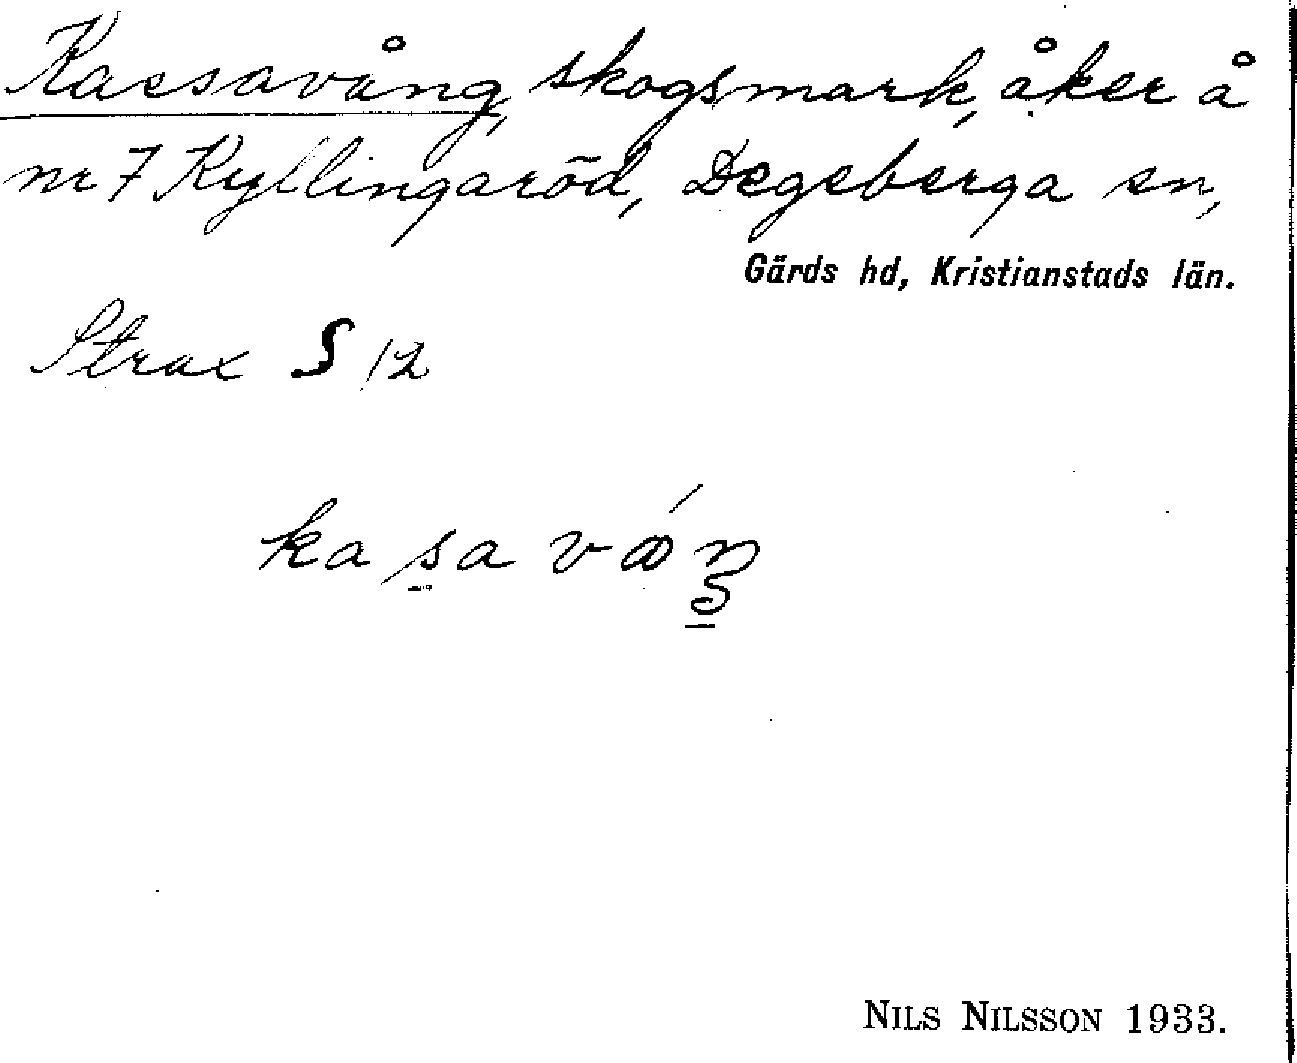 Kassavång, skogsmark, åker å
nr 7 Kyllingaröd, Degeberga sn,
Gärds hd, Kristianstads län.
Strax S 12
NILS NILSSON 1933.